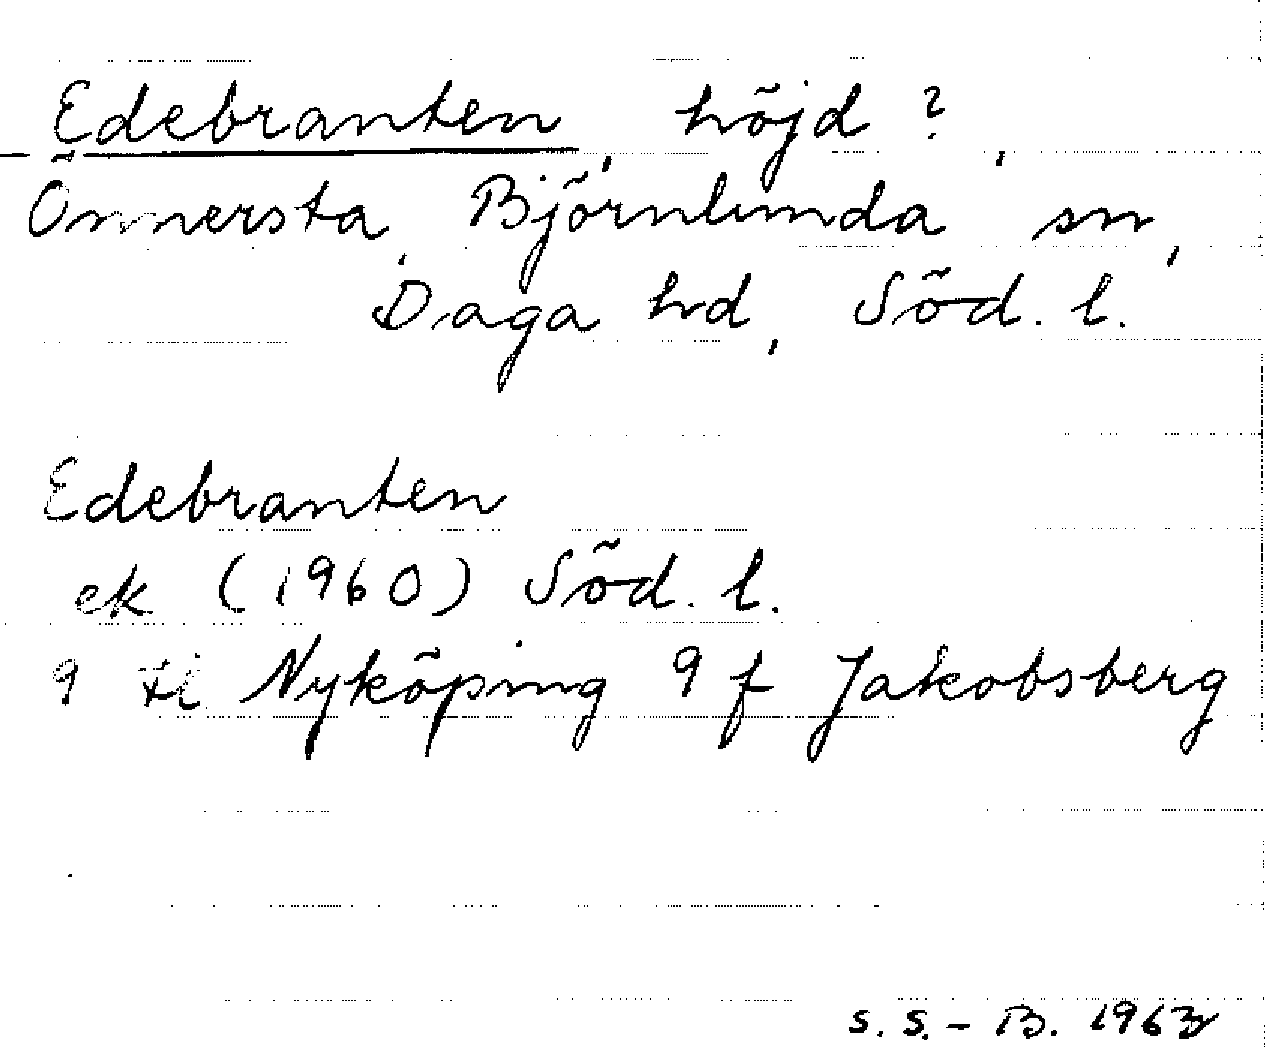 Edebranten, höjd?,
Önnersta, Björnlunda sn,
Daga hd, Söd. l.
Edebranten
ek (1960) Söd. l.
9 H Nyköping 9 f Jakobsberg
S. S.-B. 1963